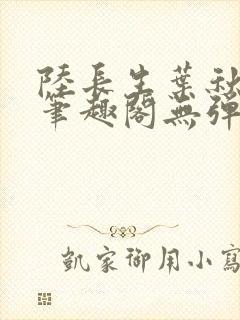 陸長生葉秋
筆趣閣無彈
凱家御用小寫